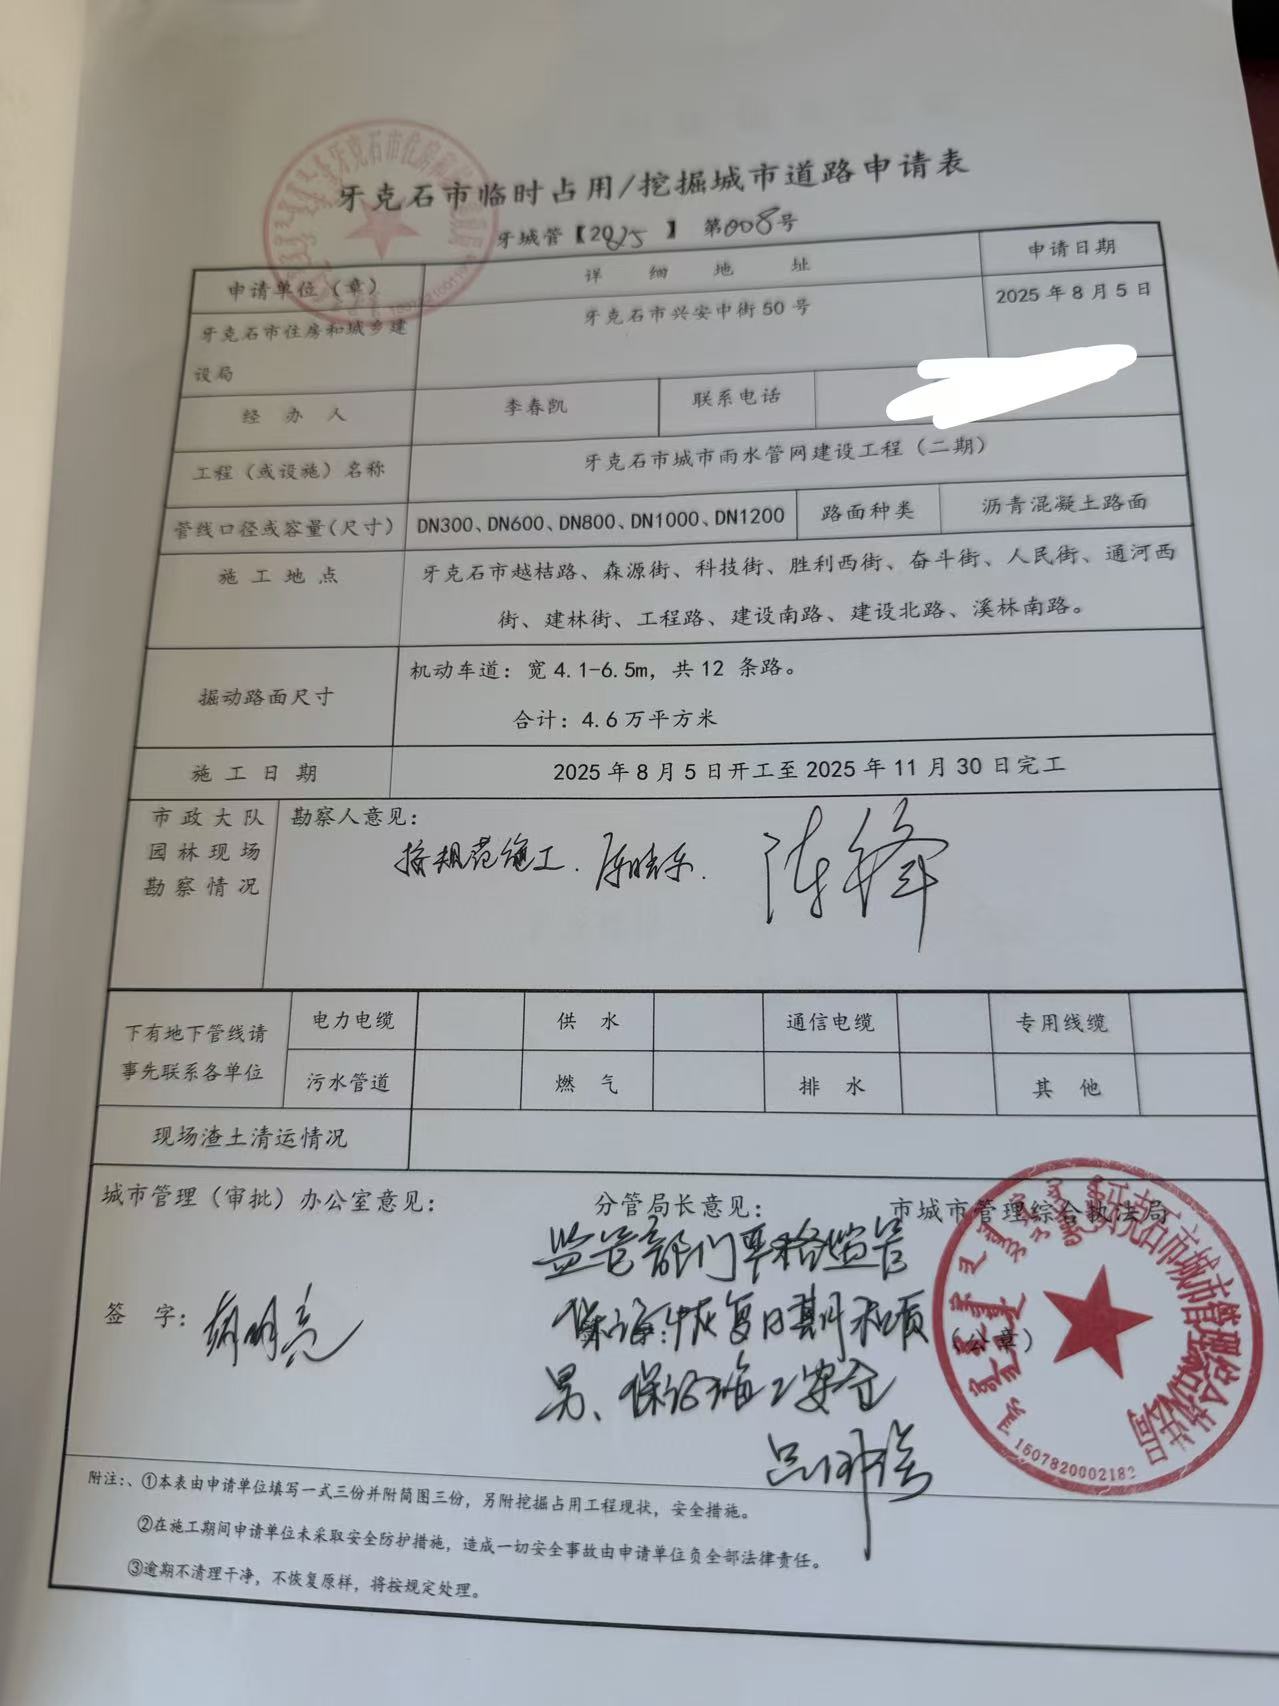 牙克石市临时占用/挖掘城市道路申请表
牙城管【2025】 第008号
申请单位（章）
详 细 地 址
申请日期
牙克石市住房和城乡建
设局
牙克石市兴安中街50号
2025年8月5日
经 办 人
李春凯
联系电话
工程（或设施）名称
牙克石市城市雨水管网建设工程（二期）
管线口径或容量(尺寸)
DN300、DN600、DN800、DN1000、DN1200
路面种类
沥青混凝土路面
施 工 地 点
牙克石市越桔路、森源街、科技街、胜利西街、奋斗街、人民街、通河西
街、建林街、工程路、建设南路、建设北路、溪林南路。
掘动路面尺寸
机动车道：宽4.1-6.5m，共12 条路。
合计：4.6万平方米
施 工 日 期
2025年8月5日开工至2025年11月30日完工
市政大队
园林现场
勘察情况
勘察人意见：
按规范施工.
下有地下管线请
事先联系各单位
电力电缆
供 水
通信电缆
专用线缆
污水管道
燃 气
排 水
其 他
现场渣土清运情况
城市管理（审批）办公室意见：
分管局长意见：
市城市管理综合执法局
监管部门严格监管
恢复日期和质
量、保证施工安全
签 字：
（公章）
牙克石市城市管理综合执法局
1507820002182
附注：、①本表由申请单位填写一式三份并附简图三份，另附挖掘占用工程现状，安全措施。
②在施工期间申请单位未采取安全防护措施，造成一切安全事故由申请单位负全部法律责任。
③逾期不清理干净，不恢复原样，将按规定处理。